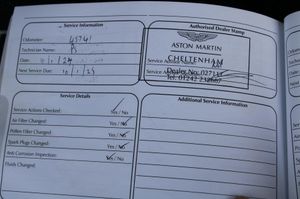 Service Information
Odometer: 45741
Technician Name:
Date: /1/24
Next Service Due: 10/1/25
Authorised Dealer Stamp
ASTON MARTIN
CHELTENHAM
Service A
Service A
Dealer No.
Tel. 01242
Service Details
Service Actions Checked: Yes/No
Air Filter Changed: Yes/No
Pollen Filter Changed: Yes/No
Spark Plugs Changed: Yes/No
Anti Corrosion Inspection: Yes/No
Fluids Changed:
Additional Service Information